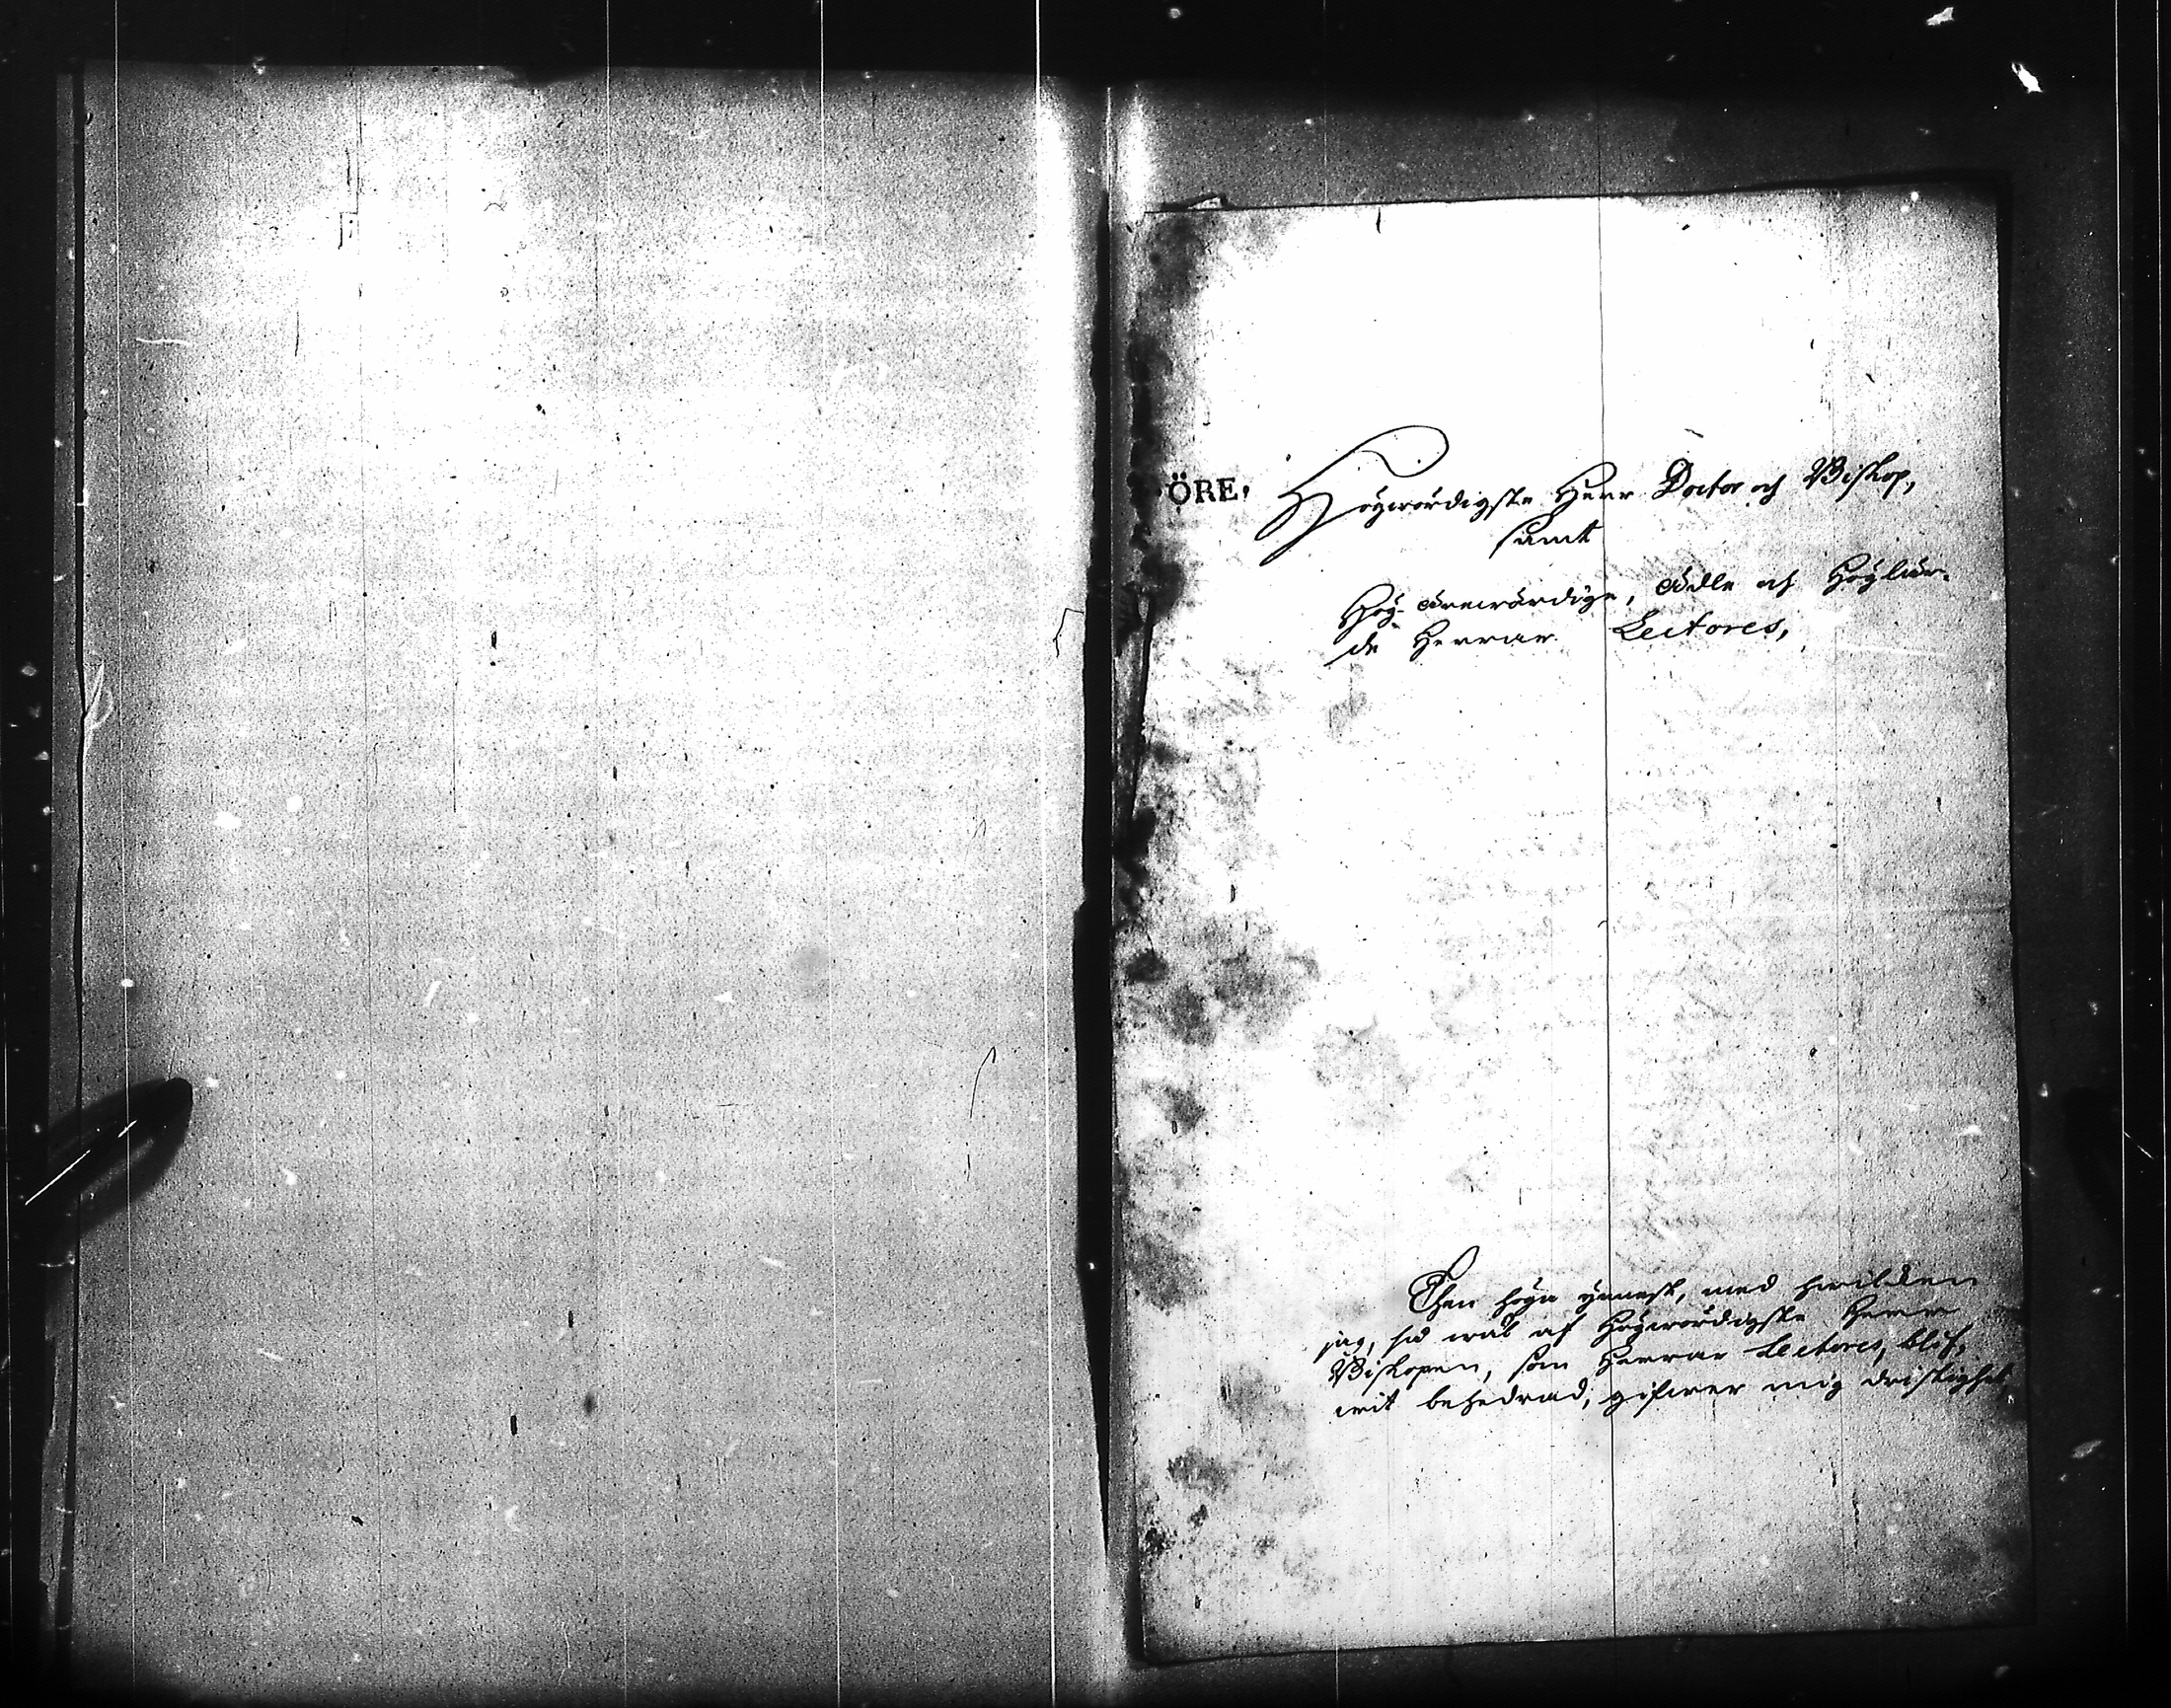 ÖRE.
Högwördigste Herr Doctor och Biskop,
samt
Hög-ärewördige, Ädle och Höglär-
de Herrar Lectores,
Then höga ynnest, med hwilcken
jag, så wäl af Högwördigste Herr
Biskopen, som Herrar Lectores, blif-
wit behedrad, gifwer mig dristighet